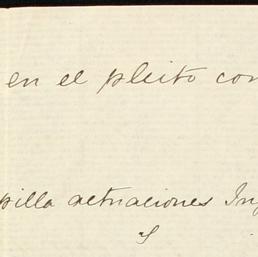 en el pleito con
pilla actuaciones
y